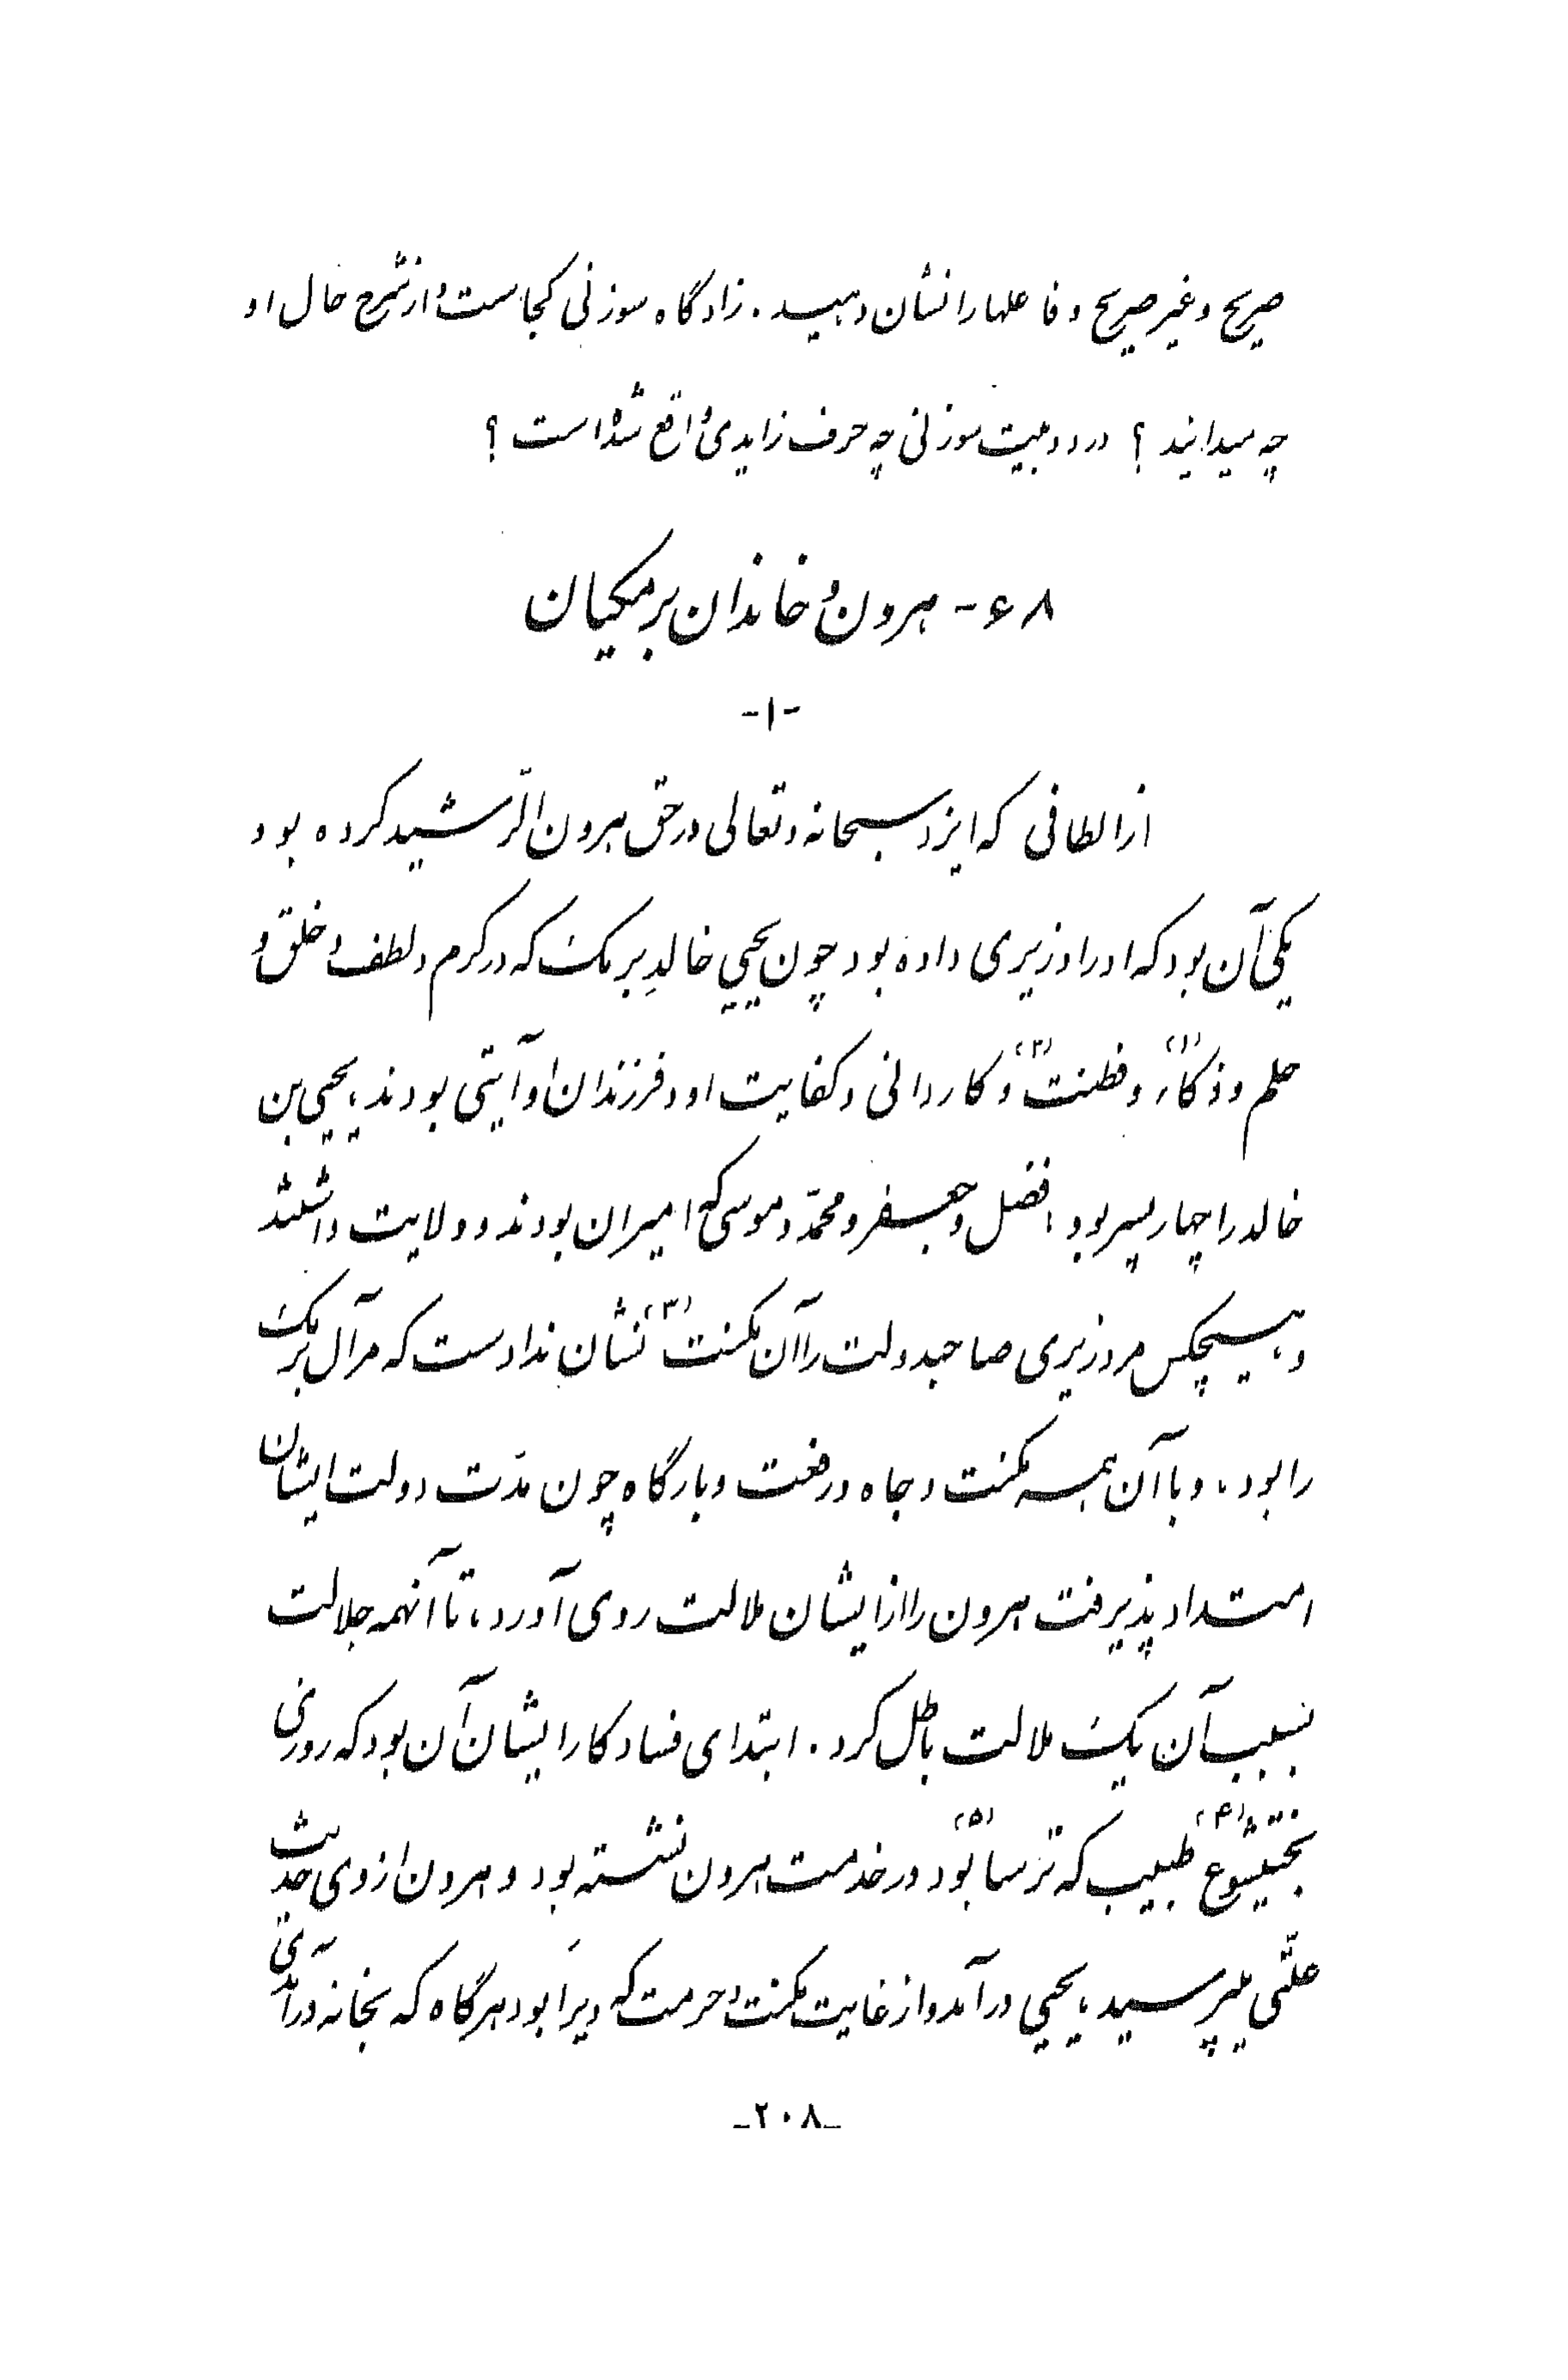 صریح و غیر صریح و فاعلها را نشان دهید. زادگاه سوزنی کجاست و از شرح حال او
چه میدانید؟ در دو بیت سوزنی چه حرف زایدی واقع شده است؟
۶۸- هرون و خاندان برمکیان
-۱-
از الطافی که ایزد سبحانه و تعالی در حق هرون الرّشید کرده بود
یکی آن بود که او را وزیری داده بود چون یحیی خالدِ برمک که در کرم و لطف و خلق و
حلم و ذکاء(۱) و فطنت(۲) و کاردانی و کفایت او و فرزندان او آیتی بودند، یحیی بن
خالد را چهار پسر بود: فضل و جعفر و محمّد و موسی که امیران بودند و ولایت داشتند
و هیچکس مر وزیری صاحبدولت را آن مکنت(۳) نشان ندادست که مر آل برمک
را بود، و با آن همه مکنت و جاه و رفعت و بارگاه چون مدّت دولت ایشان
امتداد پذیرفت هرون را از ایشان ملالت روی آورد، تا آنهمه جلالت
بسبب آن یک ملالت باطل کرد. ابتدای فساد کار ایشان آن بود که روزی
بختیشوع(۴) طبیب که ترسا(۵) بود در خدمت هرون نشسته بود و هرون از وی حدیث
علّتی میپرسید، یحیی درآمد و از غایت مکنت و حرمت که ویرا بود هرگاه که بخانه درآمدی
-۲۰۸-